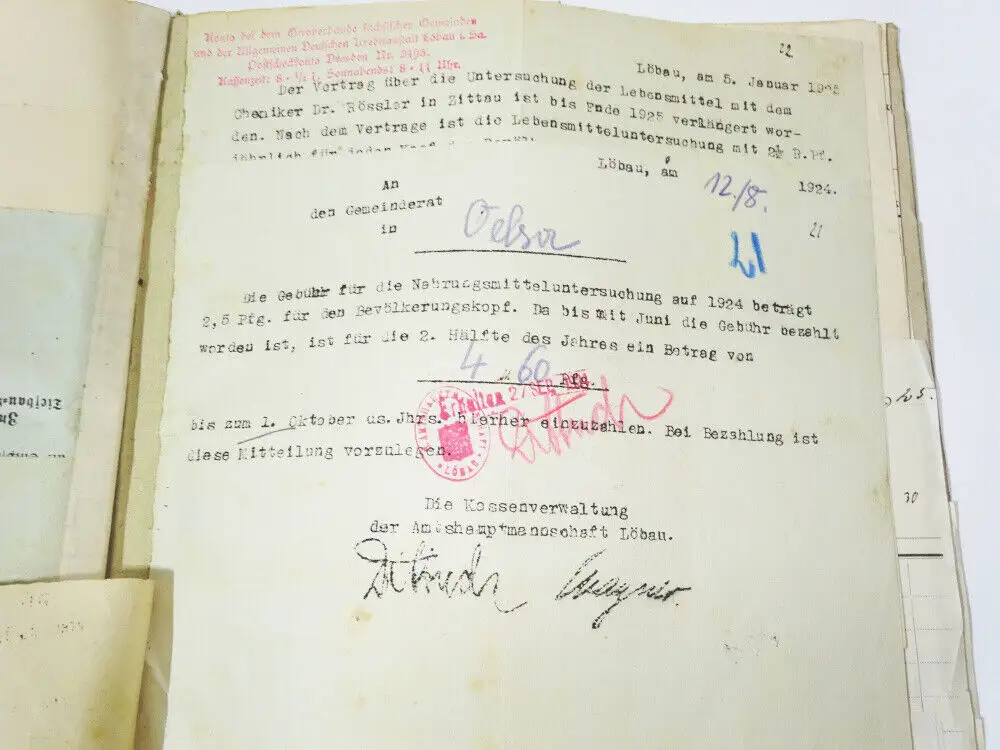 Konto bei dem Giroverbande sächsischer Gemeinden
und der Allgemeinen Deutschen Creditanstalt Löbau i. Sa.
Postscheckkonto Dresden Nr.
Kassenzeit: 8 - ½ 1, Sonnabends 8 - 11 Uhr.
22
Löbau, am 5. Januar 1925
Der Vertrag über die Untersuchung der Lebensmittel mit dem
Chemiker Dr. Rössler in Zittau ist bis Ende 1925 verlängert wor-
den. Nach dem Vertrage ist die Lebensmitteluntersuchung mit 2½ R.Pf.
jährlich für jeden Kopf der
Löbau, am 12./8. 1924.
An
den Gemeinderat
in Oelsa
21
21
Die Gebühr für die Nahrungsmitteluntersuchung auf 1924 beträgt
2,5 Pfg. für den Bevölkerungskopf. Da bis mit Juni die Gebühr bezahlt
worden ist, ist für die 2. Hälfte des Jahres ein Betrag von
4 M 60 Pfg.
Erhalten 27 SEP.
Dittrich
bis zum 1. Oktober ds. Jhrs. hierher einzuzahlen. Bei Bezahlung ist
diese Mitteilung vorzulegen.
Die Kassenverwaltung
der Amtshauptmannschaft Löbau.
Dittrich Wagner
Tiefbau
25.
30